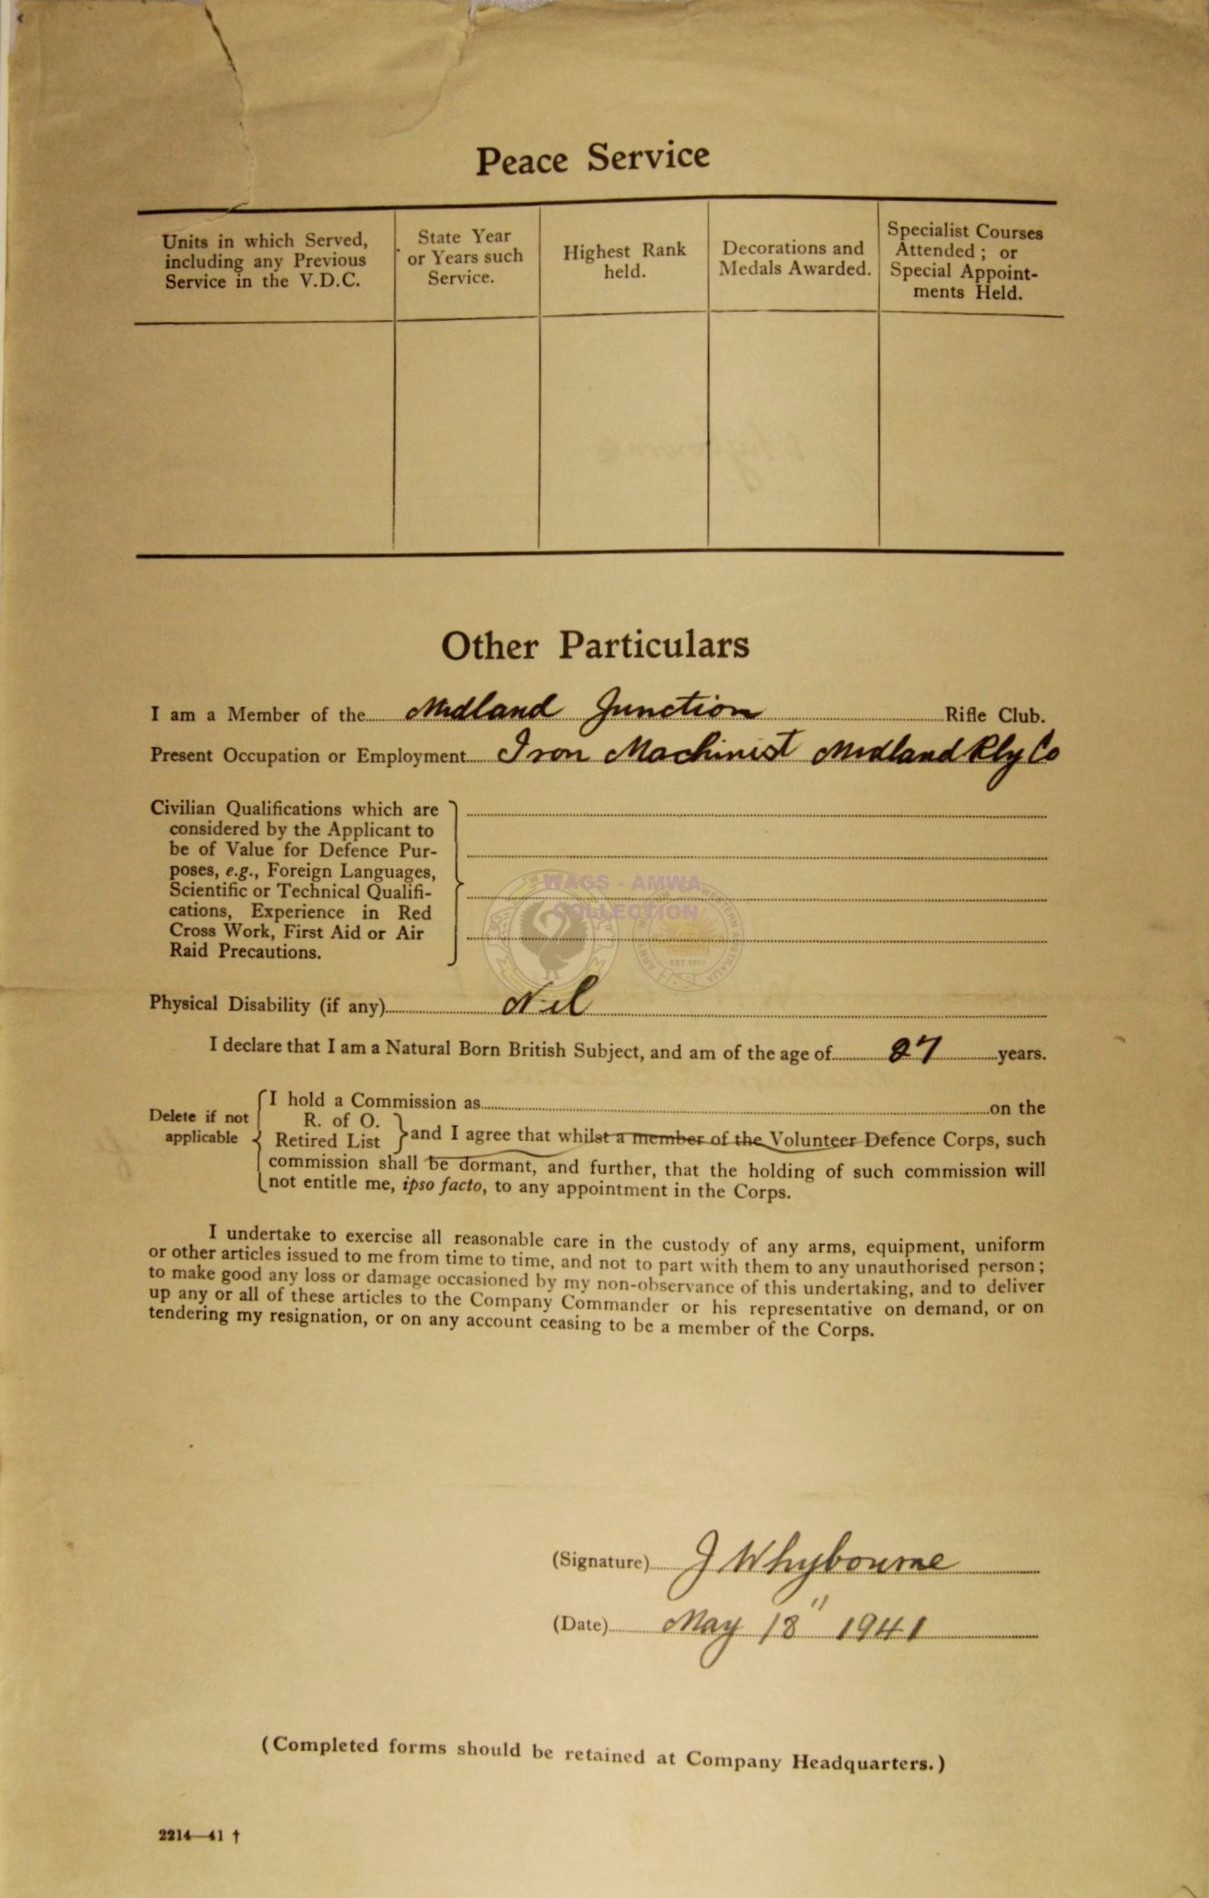 Peace Service
Units in which Served,
including any Previous
Service in the V.D.C.
State Year
or Years such
Service.
Highest Rank
held.
Decorations and
Medals Awarded.
Specialist Courses
Attended; or
Special Appoint-
ments Held.
Other Particulars
I am a Member of the Midland Junction Rifle Club.
Present Occupation or Employment Iron Machinist Midland Rly Co
Civilian Qualifications which are
considered by the Applicant to
be of Value for Defence Pur-
poses, e.g., Foreign Languages,
Scientific or Technical Qualifi-
cations, Experience in Red
Cross Work, First Aid or Air
Raid Precautions.
WAGS - AMWA
COLLECTION
Physical Disability (if any) Nil
I declare that I am a Natural Born British Subject, and am of the age of 27 years.
Delete if not
applicable
I hold a Commission as on the
R. of O.
Retired List
and I agree that whilst a member of the Volunteer Defence Corps, such
commission shall be dormant, and further, that the holding of such commission will
not entitle me, ipso facto, to any appointment in the Corps.
I undertake to exercise all reasonable care in the custody of any arms, equipment, uniform
or other articles issued to me from time to time, and not to part with them to any unauthorised person;
to make good any loss or damage occasioned by my non-observance of this undertaking, and to deliver
up any or all of these articles to the Company Commander or his representative on demand, or on
tendering my resignation, or on any account ceasing to be a member of the Corps.
(Signature) J Whybourne
(Date) May 18" 1941
(Completed forms should be retained at Company Headquarters.)
2214—41 †